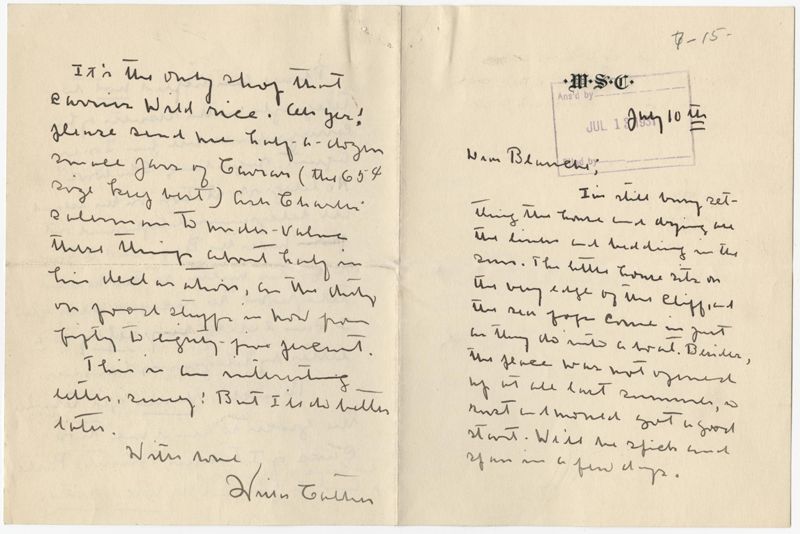 7-15-
·W·S·C·
Ans'd by
July 10th
JUL 1 1931
Dear Blanche;
I'm still busy set-
tling the house and drying all
the linen and bedding in the
sun. The little house sits on
the very edge of the cliff, and
the sea fogs come in just
as they do into a boat. Besides,
the place was not opened
up at all last summer, so
rust and mould got a good
start. Will be spick and
span in a few days.
It's the only shop that
carries wild rice. Ah yes!
please send me half-a-dozen
small jars of Caviar (the 65¢
size keep best) Ask Charles'
salesman to under-value
these things about half in
his declaration, as the duty
on food stuffs is now from
fifty to eighty-five percent.
This is an interesting
letter, surely! But I'll do better
later.
With love
Willa Cather